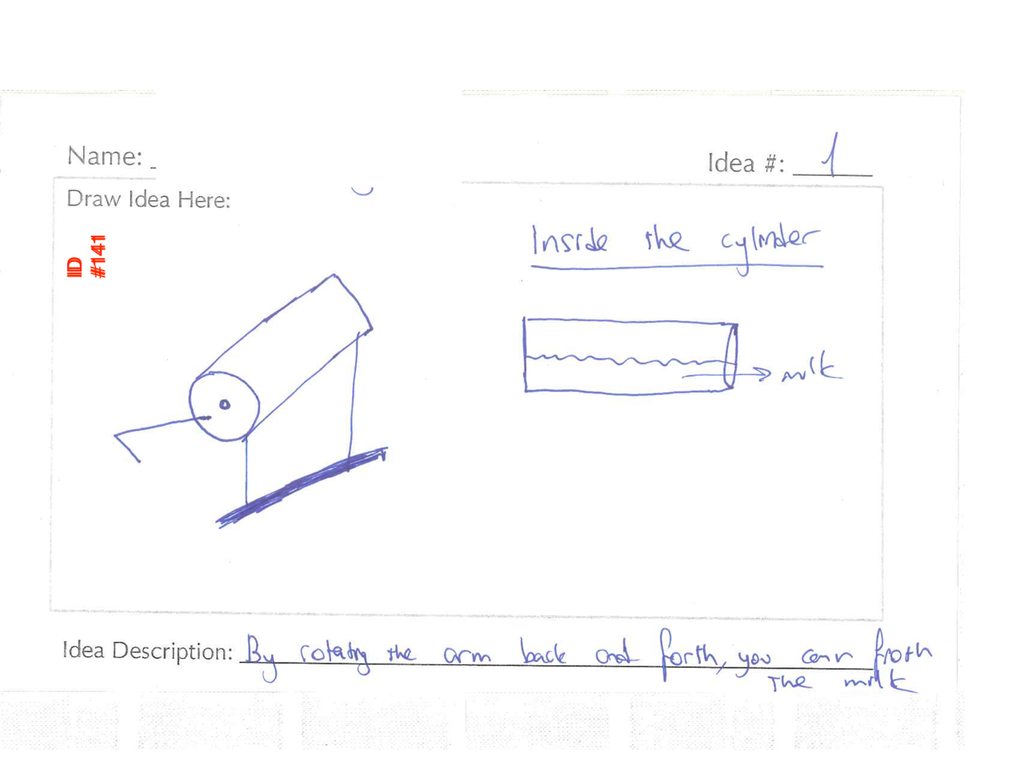 Name: _
Idea #: 1
Draw Idea Here:
ID
#141
Inside the cylinder
milk
Idea Description: By rotating the arm back and forth, you can froth
the milk